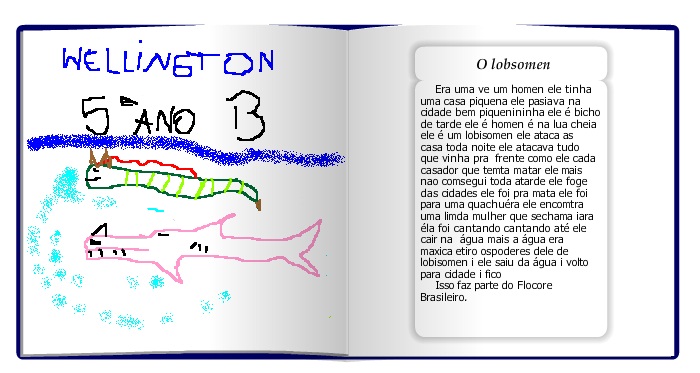 WELLINGTON
5º ANO B
O lobsomen
Era uma ve um homen ele tinha
uma casa piquena ele pasiava na
cidade bem piquenininha ele é bicho
de tarde ele é homen é na lua cheia
ele é um lobisomen ele ataca as
casa toda noite ele atacava tudo
que vinha pra frente como ele cada
casador que temta matar ele mais
nao comsegui toda atarde ele foge
das cidades ele foi pra mata ele foi
para uma quachuéra ele encomtra
uma limda mulher que sechama iara
éla foi cantando cantando até ele
cair na água mais a água era
maxica etiro ospoderes dele de
lobisomen i ele saiu da água i volto
para cidade i fico
Isso faz parte do Flocore
Brasileiro.